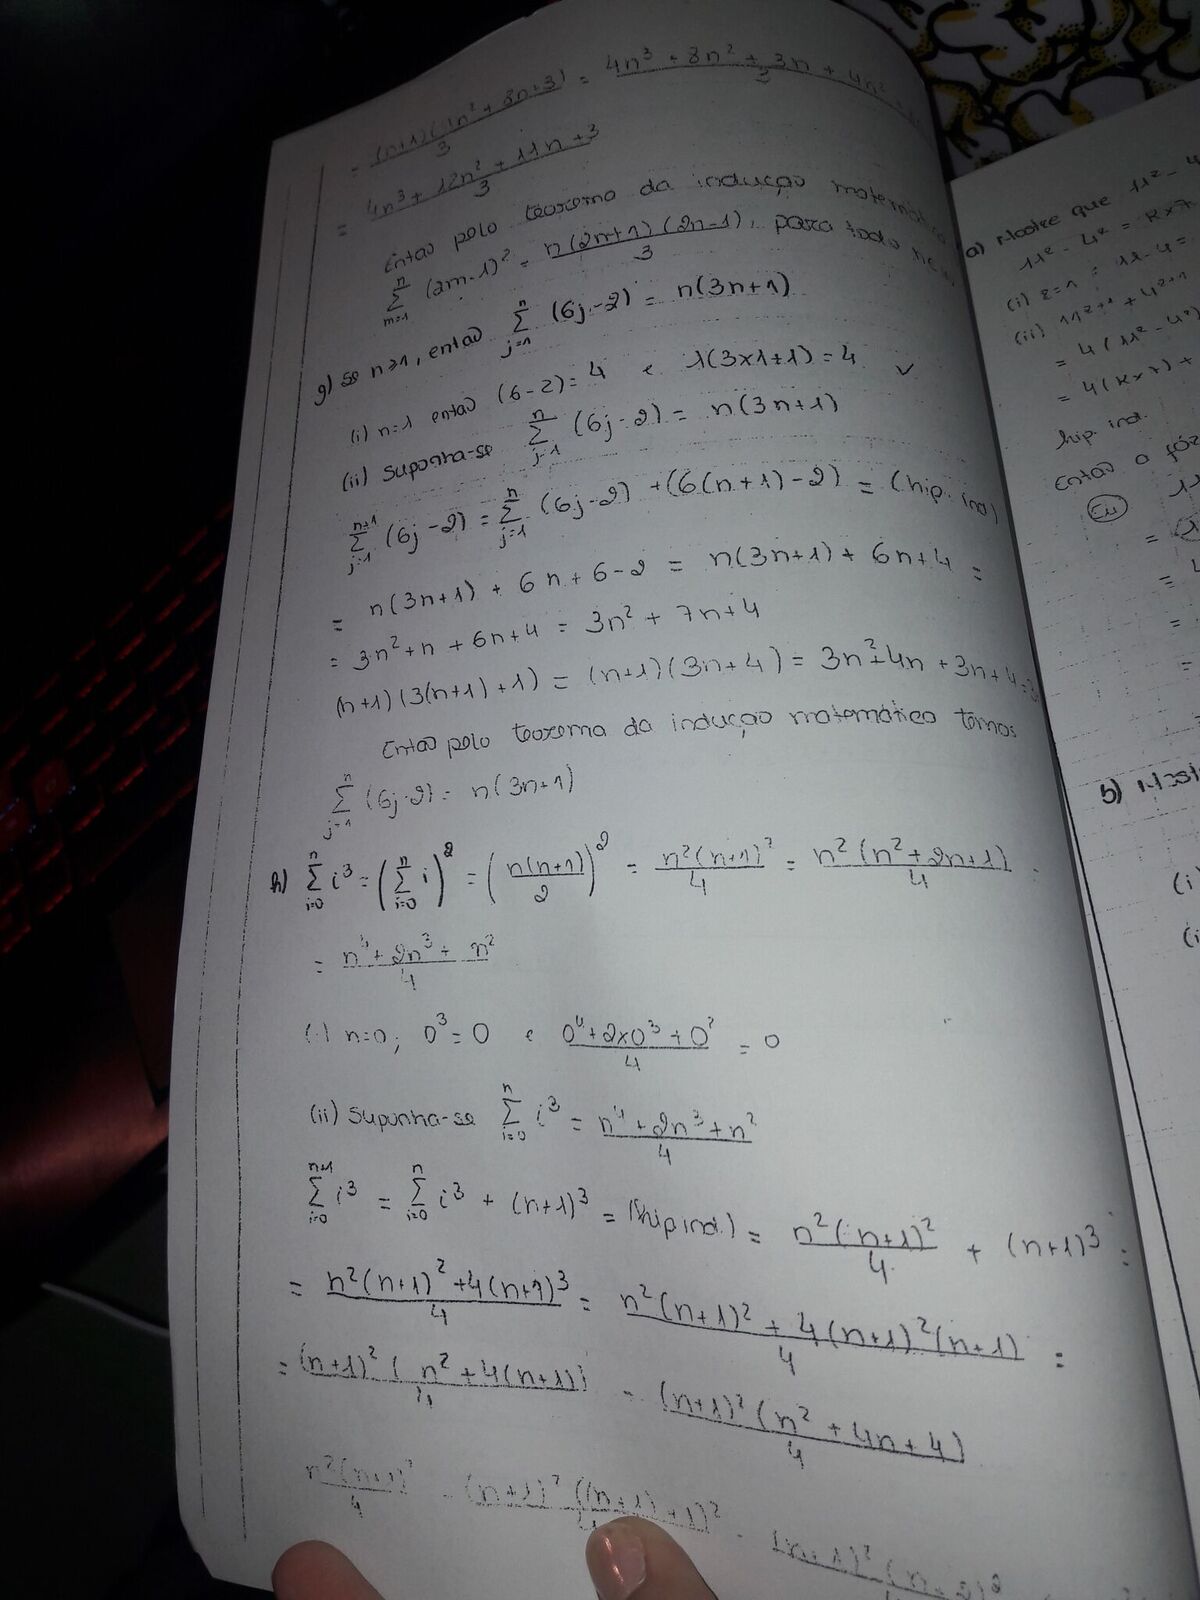 = (n+1)(4n² + 8n+3)/3 = 4n³ + 8n² + 3n + 4n²/3
= 4n³ + 12n² + 11n + 3/3
Então pelo teorema da indução
∑_{m=1}^{n} (2m-1)² = n(2n+1)(2n-1)/3, para todo
g) Se n≥1, então ∑_{j=1}^{n} (6j-2) = n(3n+1)
(i) n=1 então (6-2)=4 e 1(3×1+1)=4 ✓
(ii) Suponha-se ∑_{j=1}^{n} (6j-2) = n(3n+1)
∑_{j=1}^{n+1} (6j-2) = ∑_{j=1}^{n} (6j-2) + (6(n+1)-2) = (hip. ind)
= n(3n+1) + 6n+6-2 = n(3n+1) + 6n+4 =
= 3n²+n + 6n+4 = 3n² + 7n+4
(n+1)(3(n+1)+1) = (n+1)(3n+4) = 3n²+4n + 3n+4 = 3
Então pelo teorema da indução matemática temos
∑_{j=1}^{n} (6j-2) = n(3n+1)
h) ∑_{i=0}^{n} i³ = (∑_{i=0}^{n} i)² = (n(n+1)/2)² = n²(n+1)²/4 = n²(n²+2n+1)/4 =
= n⁴+2n³+ n²/4
(i) n=0; 0³=0 e 0⁴+2×0³+0²/4 = 0
(ii) Suponha-se ∑_{i=0}^{n} i³ = n⁴+2n³+n²/4
∑_{i=0}^{n+1} i³ = ∑_{i=0}^{n} i³ + (n+1)³ = (hip ind.) = n²(n+1)²/4 + (n+1)³ =
= n²(n+1)²+4(n+1)³/4 = n²(n+1)² + 4(n+1)²(n+1)/4 =
= (n+1)²(n²+4(n+1))/4 = (n+1)²(n²+4n+4)/4
n²(n+1)²/4 = (n+1)²((n+1)+1)²/4 = (n+1)²(n+2)²
a) Mostre que 11² - 4
11² - 4² = k×7
(i) z=1 : 11-4 =
(ii) 11^{z+1} + 4^{z+1}
= 4(11² - 4²)
= 4(k×7) +
hip. ind.
Então a
11
=
= 4
=
=
b) Most
(i)
(i